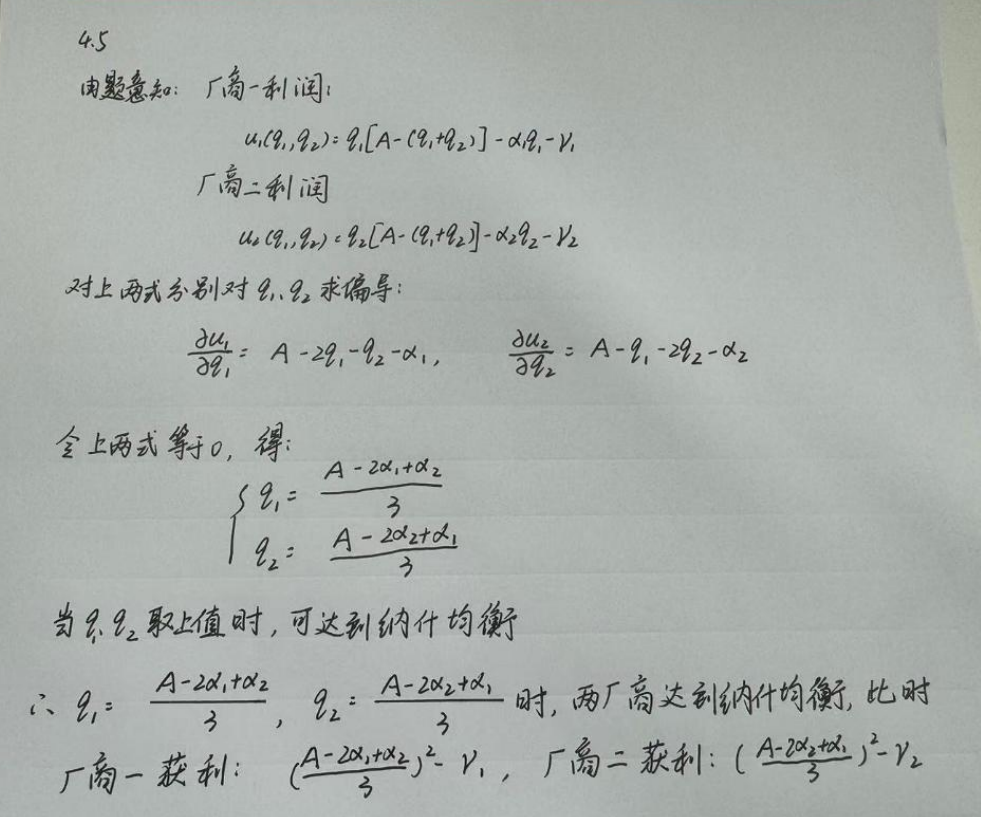 4.5
由题意知: 厂商一利润:
u₁(q₁,q₂)=q₁[A-(q₁+q₂)]-α₁q₁-γ₁
厂商二利润
u₂(q₁,q₂)=q₂[A-(q₁+q₂)]-α₂q₂-γ₂
对上两式分别对q₁、q₂求偏导:
∂u₁/∂q₁ = A-2q₁-q₂-α₁, ∂u₂/∂q₂ = A-q₁-2q₂-α₂
令上两式等于0, 得:
{ q₁= (A-2α₁+α₂)/3
q₂= (A-2α₂+α₁)/3
当q₁、q₂取上值时, 可达到纳什均衡
∴ q₁= (A-2α₁+α₂)/3, q₂= (A-2α₂+α₁)/3 时, 两厂商达到纳什均衡, 此时
厂商一获利: ((A-2α₁+α₂)/3)²-γ₁, 厂商二获利: ((A-2α₂+α₁)/3)²-γ₂